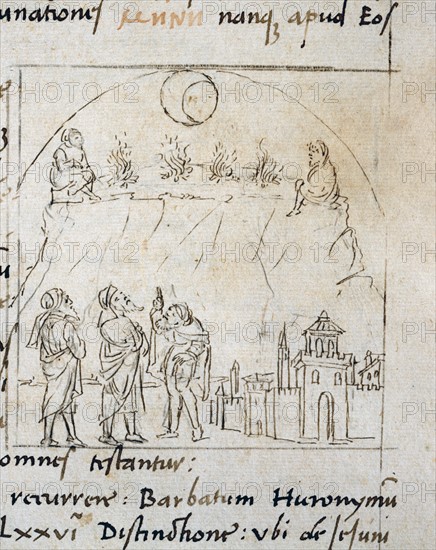 unationes nanq apud Eos
omnes testantur:
recurrere: Barbatum Hieronymū
LXXVI Distinctione: Vbi de Jejuni